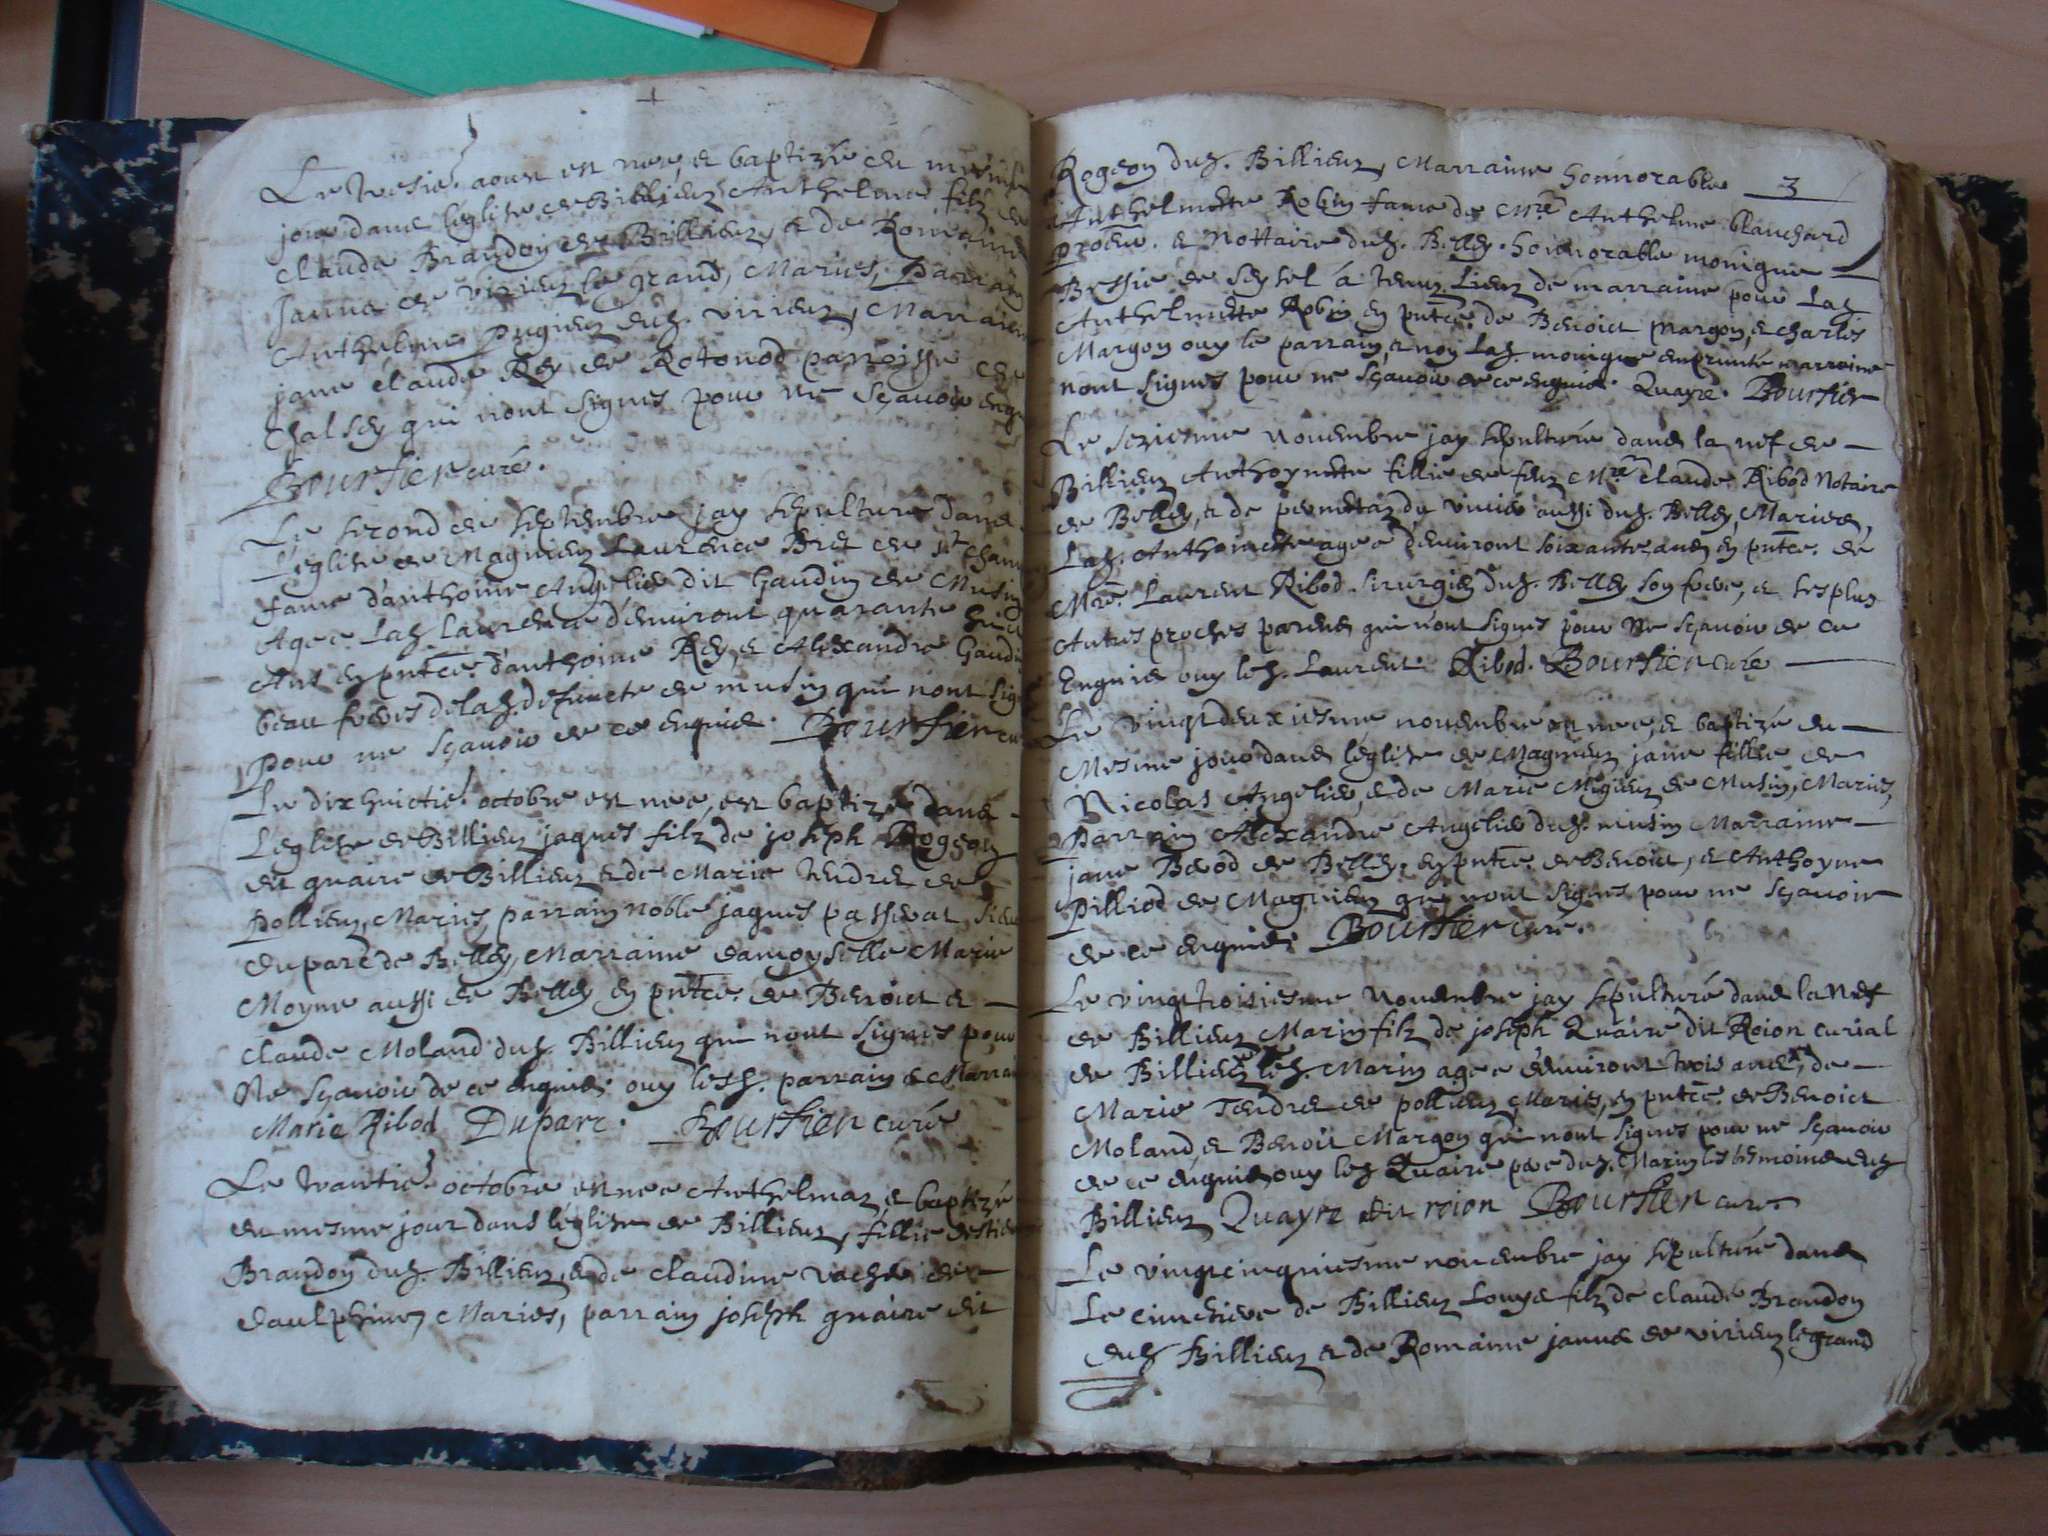 Le tresie. aoust est nee, et baptizé du mesme
jour dans léglise de Billieuz Anthelme filz de
Claude Brandon de Billieuz, et de Romaine
Janna de virieuz le grand, Mariés, Parrain
Anthelme Pugieuz dud. virieuz, Marraine
jane claude Rey de Rotonod parroisse de
Chalsey qui n'ont signés pour ne sçavoir enqu
Boursier curé.
Le second de septembre jay sepulturé dans
L'eglise de Magnieuz Laurence Briet de St Cham
fame d'anthoine Angelier dit Gaudin de Musin
Agée Lad. Laurence d'environt quarante huict
Ans en pntce. d'anthoine Rey, et Alexandre Gaudin
beau freres de lad. defuncte de musin qui n'ont sig
pour ne sçavoir de ce enquis. Boursier cu
Le dix huictie. octobre est nee, est baptizé dans
L'eglise de Billieuz jaques filz de joseph Rogeon
dit quaire de Billieuz et de Marie Tendret de
Pollieuz, Mariés, parrain noble jaques passerat, sieur
du parc de Belley, Marraine damoyselle Marie
Moyne aussi de Belley en pntce. de Benoict et
Claude Moland dud. Billieuz qui n'ont signés pour
Ne sçavoir de ce enquis. ouy lesd. parrain et Marrai
Marie Ribod Duparc. Boursier curé
Le trantie. octobre est nee Anthelmaz, et baptizé
du mesme jour dans l'église de Billieuz, fillie destienne
Brandon dud. Billieuz, et de claudine vachat de
daulphine, Mariés, parrain joseph quaire dit
3
Rogeon dud. Billieuz, Marraine honnorable
Anthelmette Robin fame de Mre Anthelme Blanchard
Procur. et Nottaire dud. Belley. honnorable monique
Bessie de Seysel á tenuz Lieuz de marraine pour Lad.
Anthelmette Robin en pntce. de Benoict Margon, et charles
Margon ouy le parrain, et non Lad. monique empruntée marraine
n'ont signés pour ne sçavoir de ce enquis. Quayre. Boursier
Le seziesme novembre jay sepulturée dans la nef de
Billieuz Anthoynette fillie de feuz Mre claude Ribod Notaire
de Belley, et de pernettaz du vivier aussi dud. Belley, Mariés,
Lad. Anthoinette agée d'environt soixante ans en pntce. de
Mre. Laurent Ribod sirurgien dud. Belley son frere, et ses plus
Autres proches parens qui n'ont signés pour ne sçavoir de ce
Enquis ouy led. Laurent. Ribod. Boursier curé
Le vingt deuxiesme novembre est nee, et baptizé du
Mesme jour dans l'église de Magnieuz jane fillie de
Nicolas Angelier, et de Marie Migieuz de Musin, Mariés,
Parrain Alexandre Angelier dud. musin Marraine
jane Berod de Belley en pntce. de Benoict, et Anthoyne
Pilliod de Magnieuz qui n'ont signés pour ne sçavoir
de ce enquis. Boursier curé.
Le vingt troisiesme Novembre jay sepulturé dans la Nef
de Billieuz Marin filz de joseph Quaire dit Roion curial
de Billieuz led. Marin agée d'environt trois ans, et de
Marie Tendret de pollieuz Mariés, en pntce. de Benoict
Moland, et Benoit Margon qui n'ont signés pour ne sçavoir
de ce enquis, ouy led. Quaire pere dud. Marin les tesmoins dud.
Billieuz Quayre dit roion Boursier curé.
Le vingt cinquiesme novembre jay sepulturé dans
Le cimetiere de Billieuz Louys filz de claude Brandon
dud. Billieuz et de Romaine janna de virieuz le grand